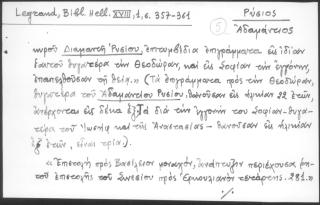 Legrand, Bibl. Hell. XVIII, 1, σ. 357-361
5
Ρύσιος
Ἀδαμάντιος
"προῦ Διαμαντῆ Ρυσίου, ἐπιτυμβίδια ἐπιγράμματα εἰς ἰδίαν
ἑαυτοῦ θυγατέρα τὴν Θεοδώραν, καὶ εἰς Σοφίαν τὴν ἐγγόνην,
τῇ θείᾳ." (Τὰ ἐπιγράμματα πρὸς τὴν Θεοδώραν,
θυγατέρα τοῦ Ἀδαμαντίου Ρυσίου, θανοῦσαν εἰς ἡλικίαν 22 ἐτῶν,
ἀνέρχονται εἰς δέκα ἕξ. Τὰ διὰ τὴν ἐγγονήν του Σοφίαν - θυγα-
τέρα τοῦ Ἰωσὴφ καὶ τῆς Ἀναστασίας - θανοῦσαν εἰς ἡλικίαν
ἓξ ἐτῶν, εἶναι τρία).
"Ἐπιστολὴ πρὸς Βασίλειον μοναχόν, ἀνάπτυξιν περιέχουσα ῥη-
τοῦ ἐπιστολῆς τοῦ Συνεσίου πρὸς Ἑρκουλιανὸν τετάρτης. 281."